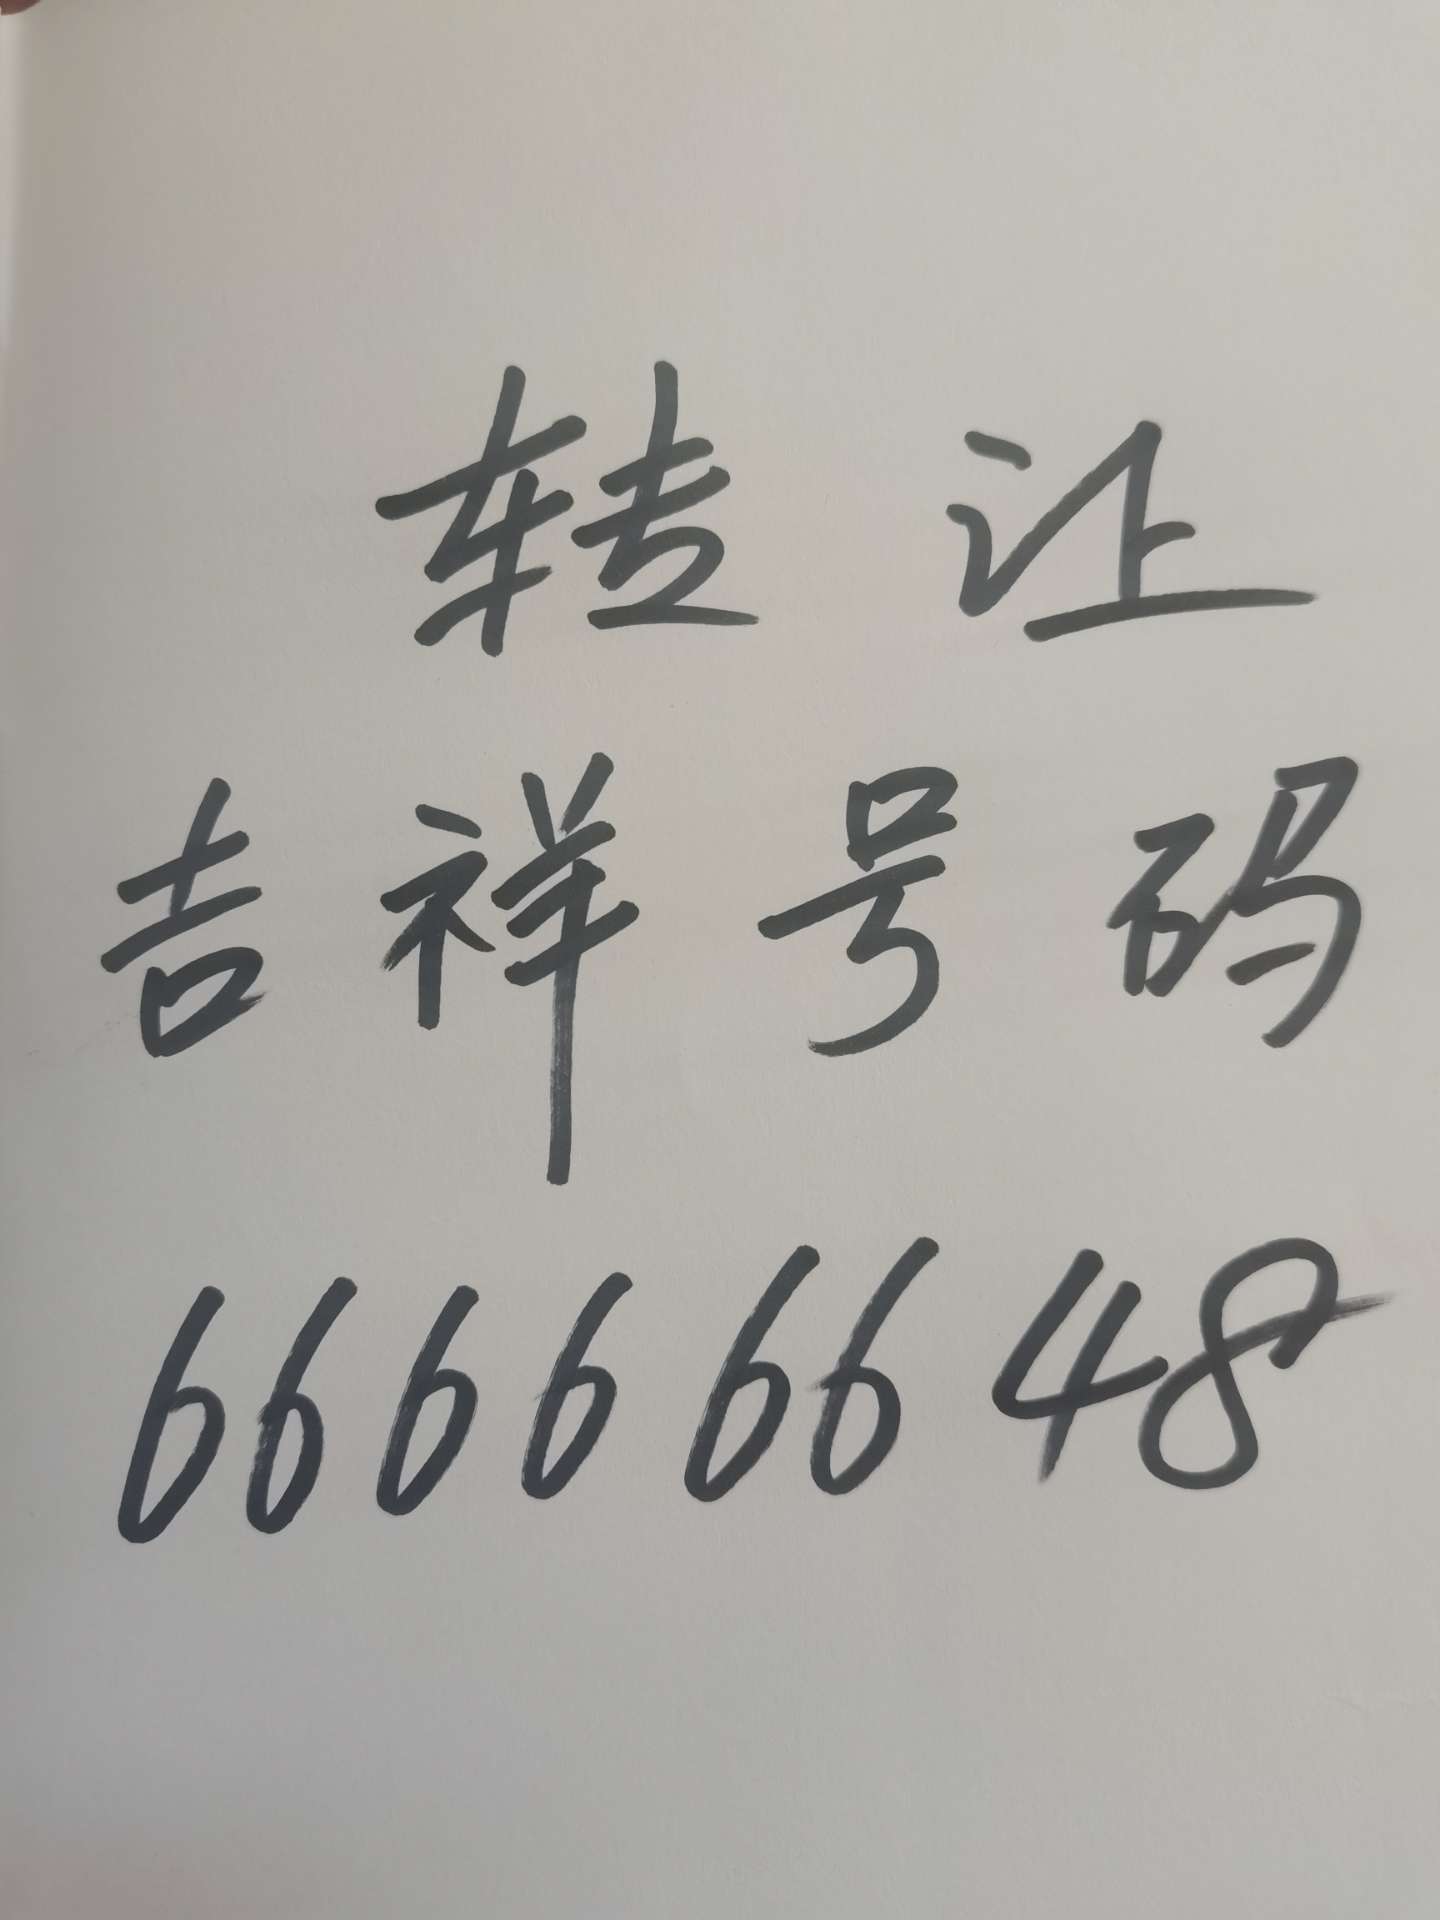 转让
吉祥号码
66666648